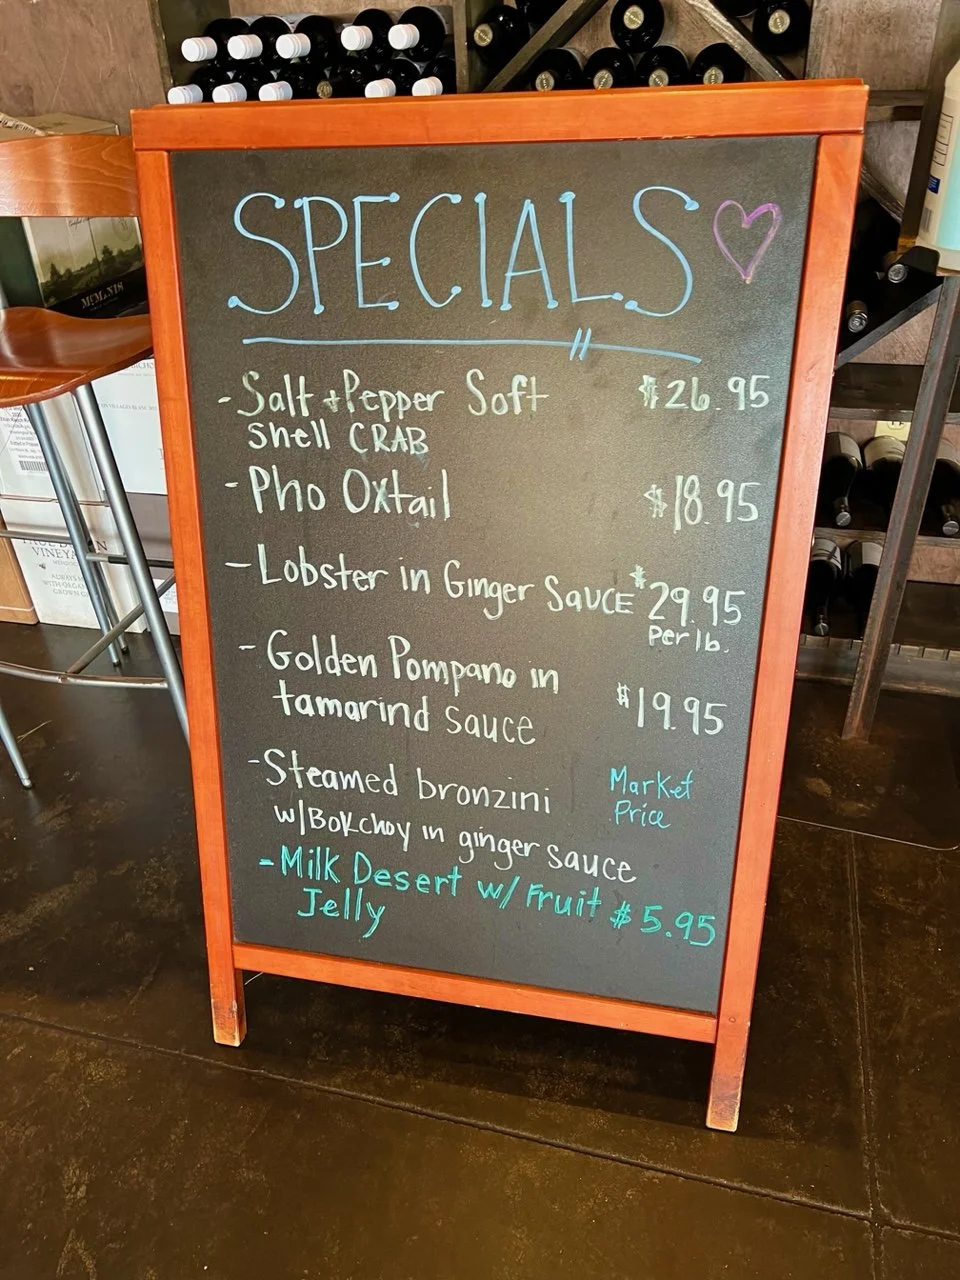 SPECIALS
- Salt + Pepper Soft $26.95
Shell CRAB
- Pho Oxtail $18.95
- Lobster in Ginger Sauce $29.95
Per lb.
- Golden Pompano in
tamarind sauce $19.95
- Steamed bronzini Market
Price
w/Bokchoy in ginger sauce
- Milk Desert w/ Fruit $5.95
Jelly
MCMLN18
VINEYA